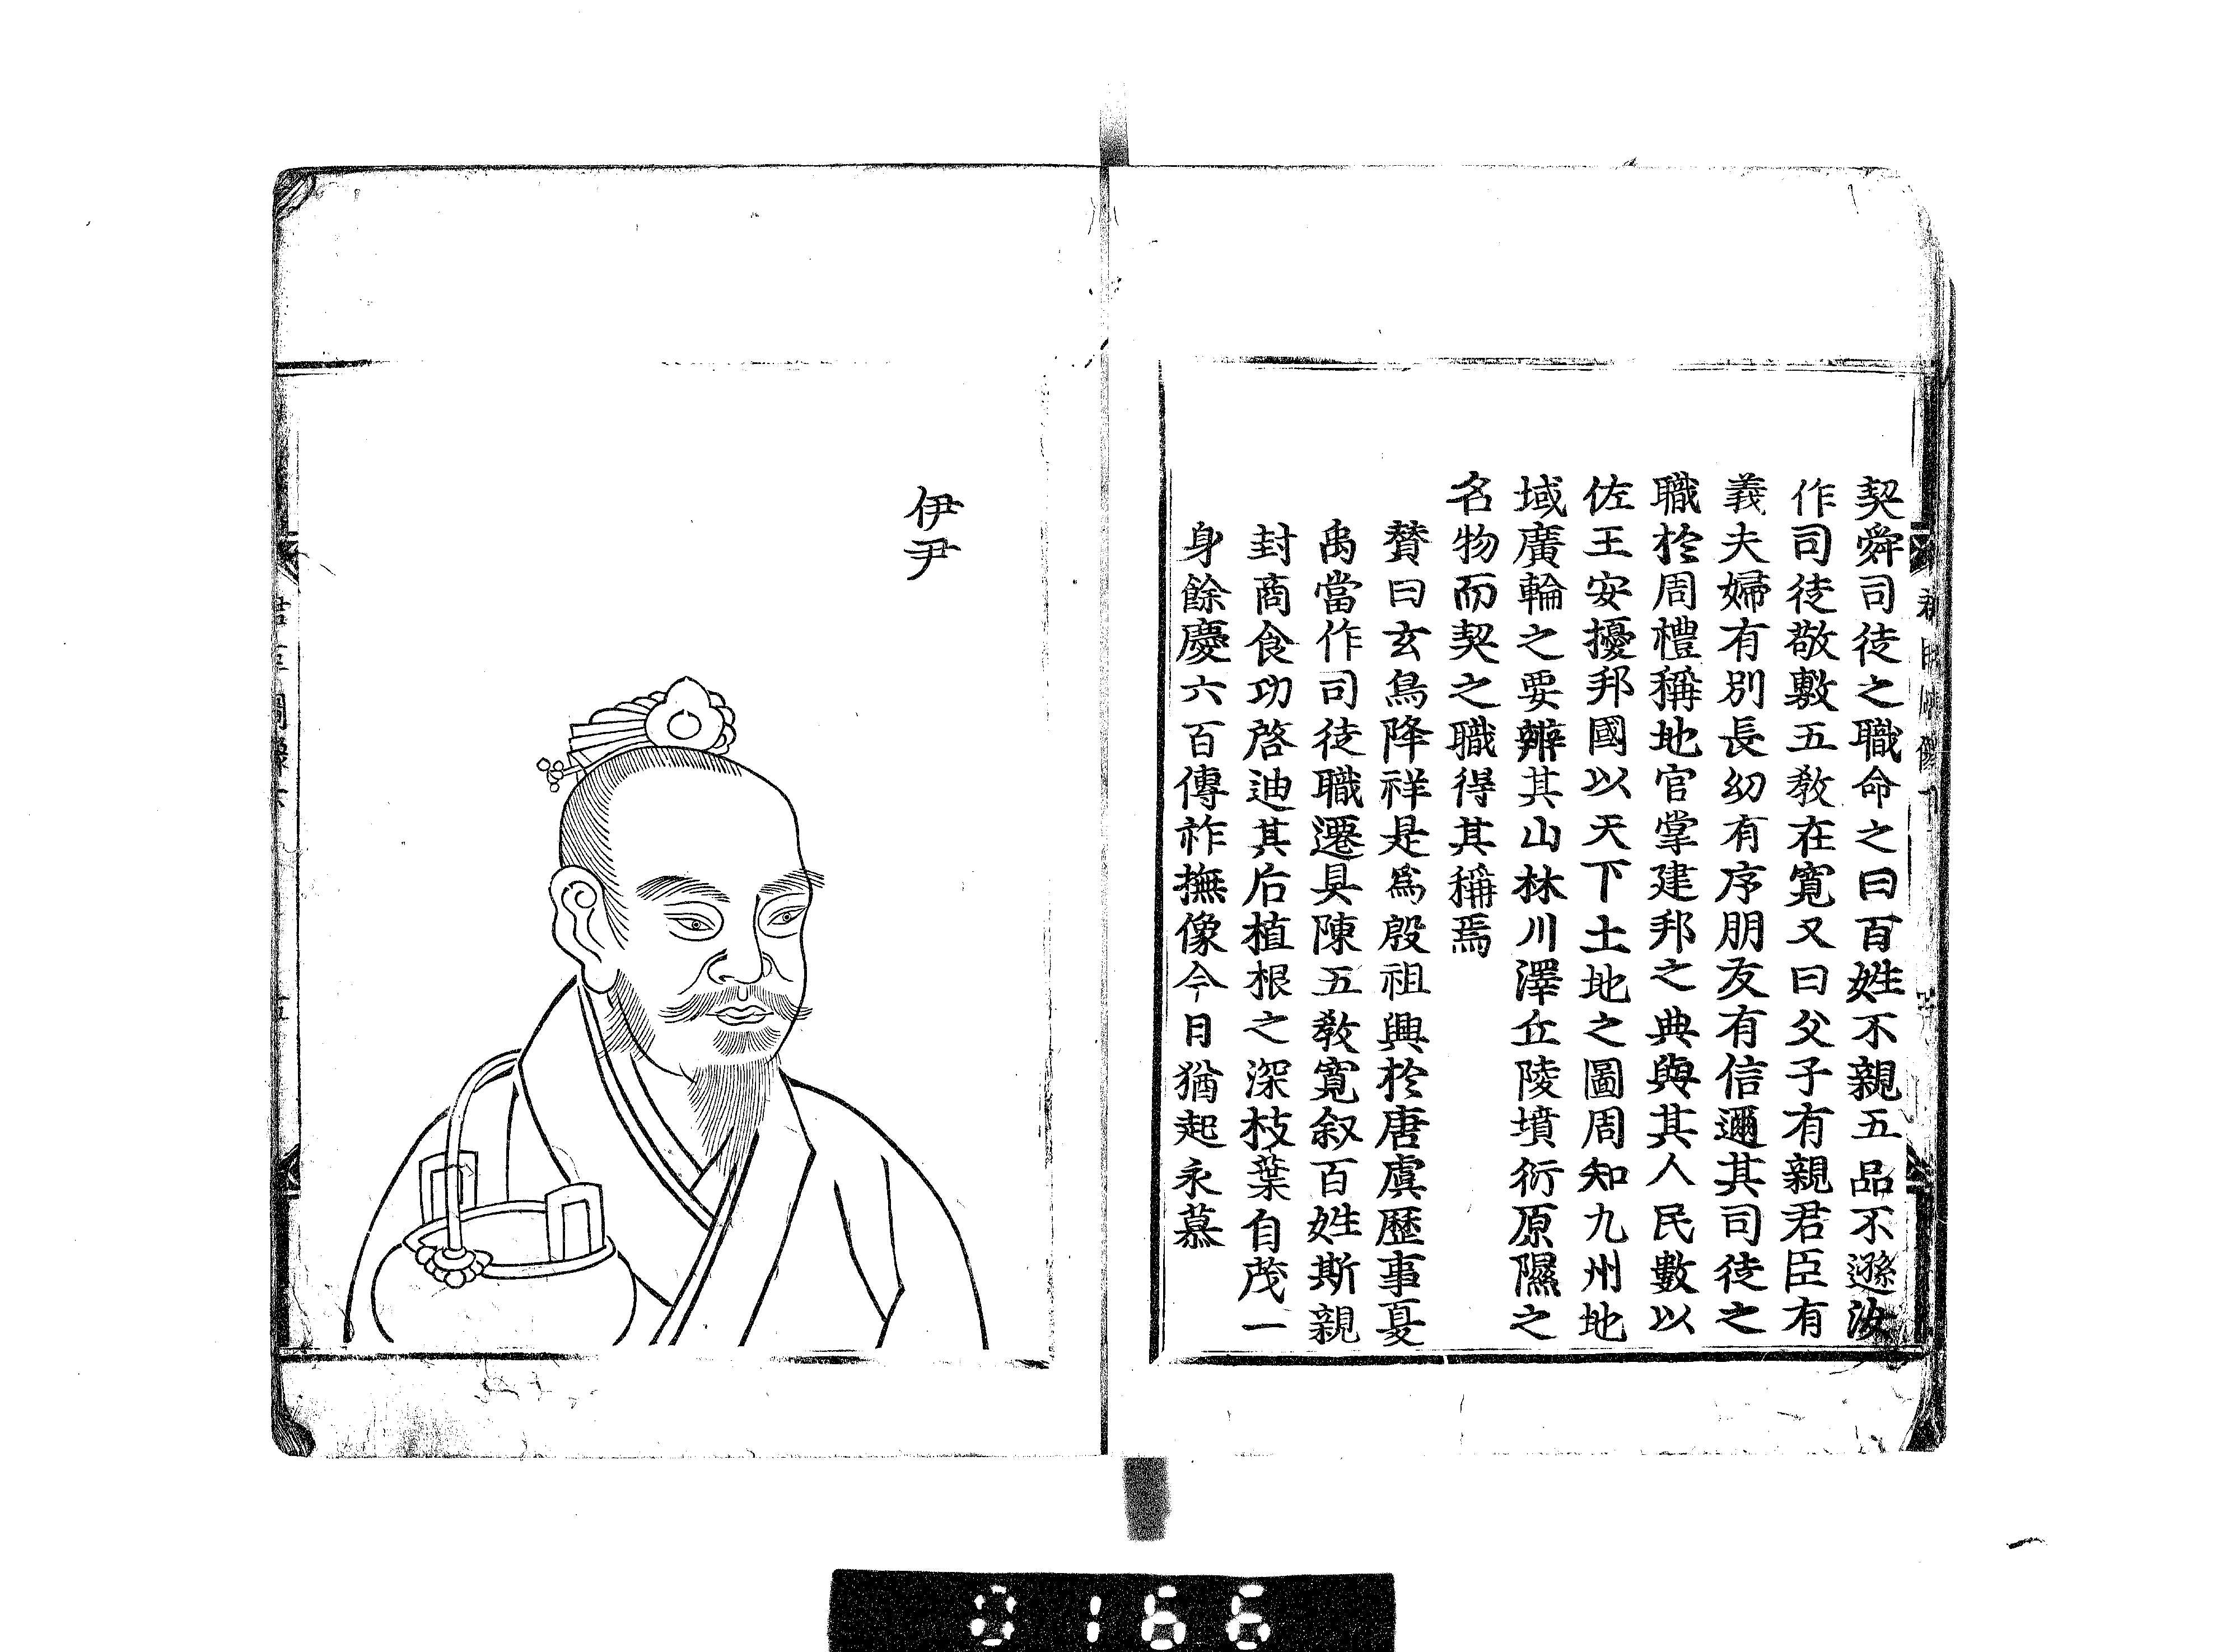 契舜司徒之職命之曰百姓不親五品不遜汝
作司徒敬敷五敎在寛又曰父子有親君臣有
義夫婦有別長幼有序朋友有信邇其司徒之
職於周禮稱地官掌建邦之典與其人民數以
佐王安擾邦國以天下土地之圖周知九州地
域廣輪之要辨其山林川澤丘陵墳衍原隰之
名物而契之職得其稱焉
賛曰玄鳥降祥是爲殷祖興於唐虞歷事夏
禹當作司徒職遷具陳五敎寛叙百姓斯親
封商食功啓迪其后植根之深枝葉自茂一
身餘慶六百傳祚撫像今日猶起永慕
伊尹
0166